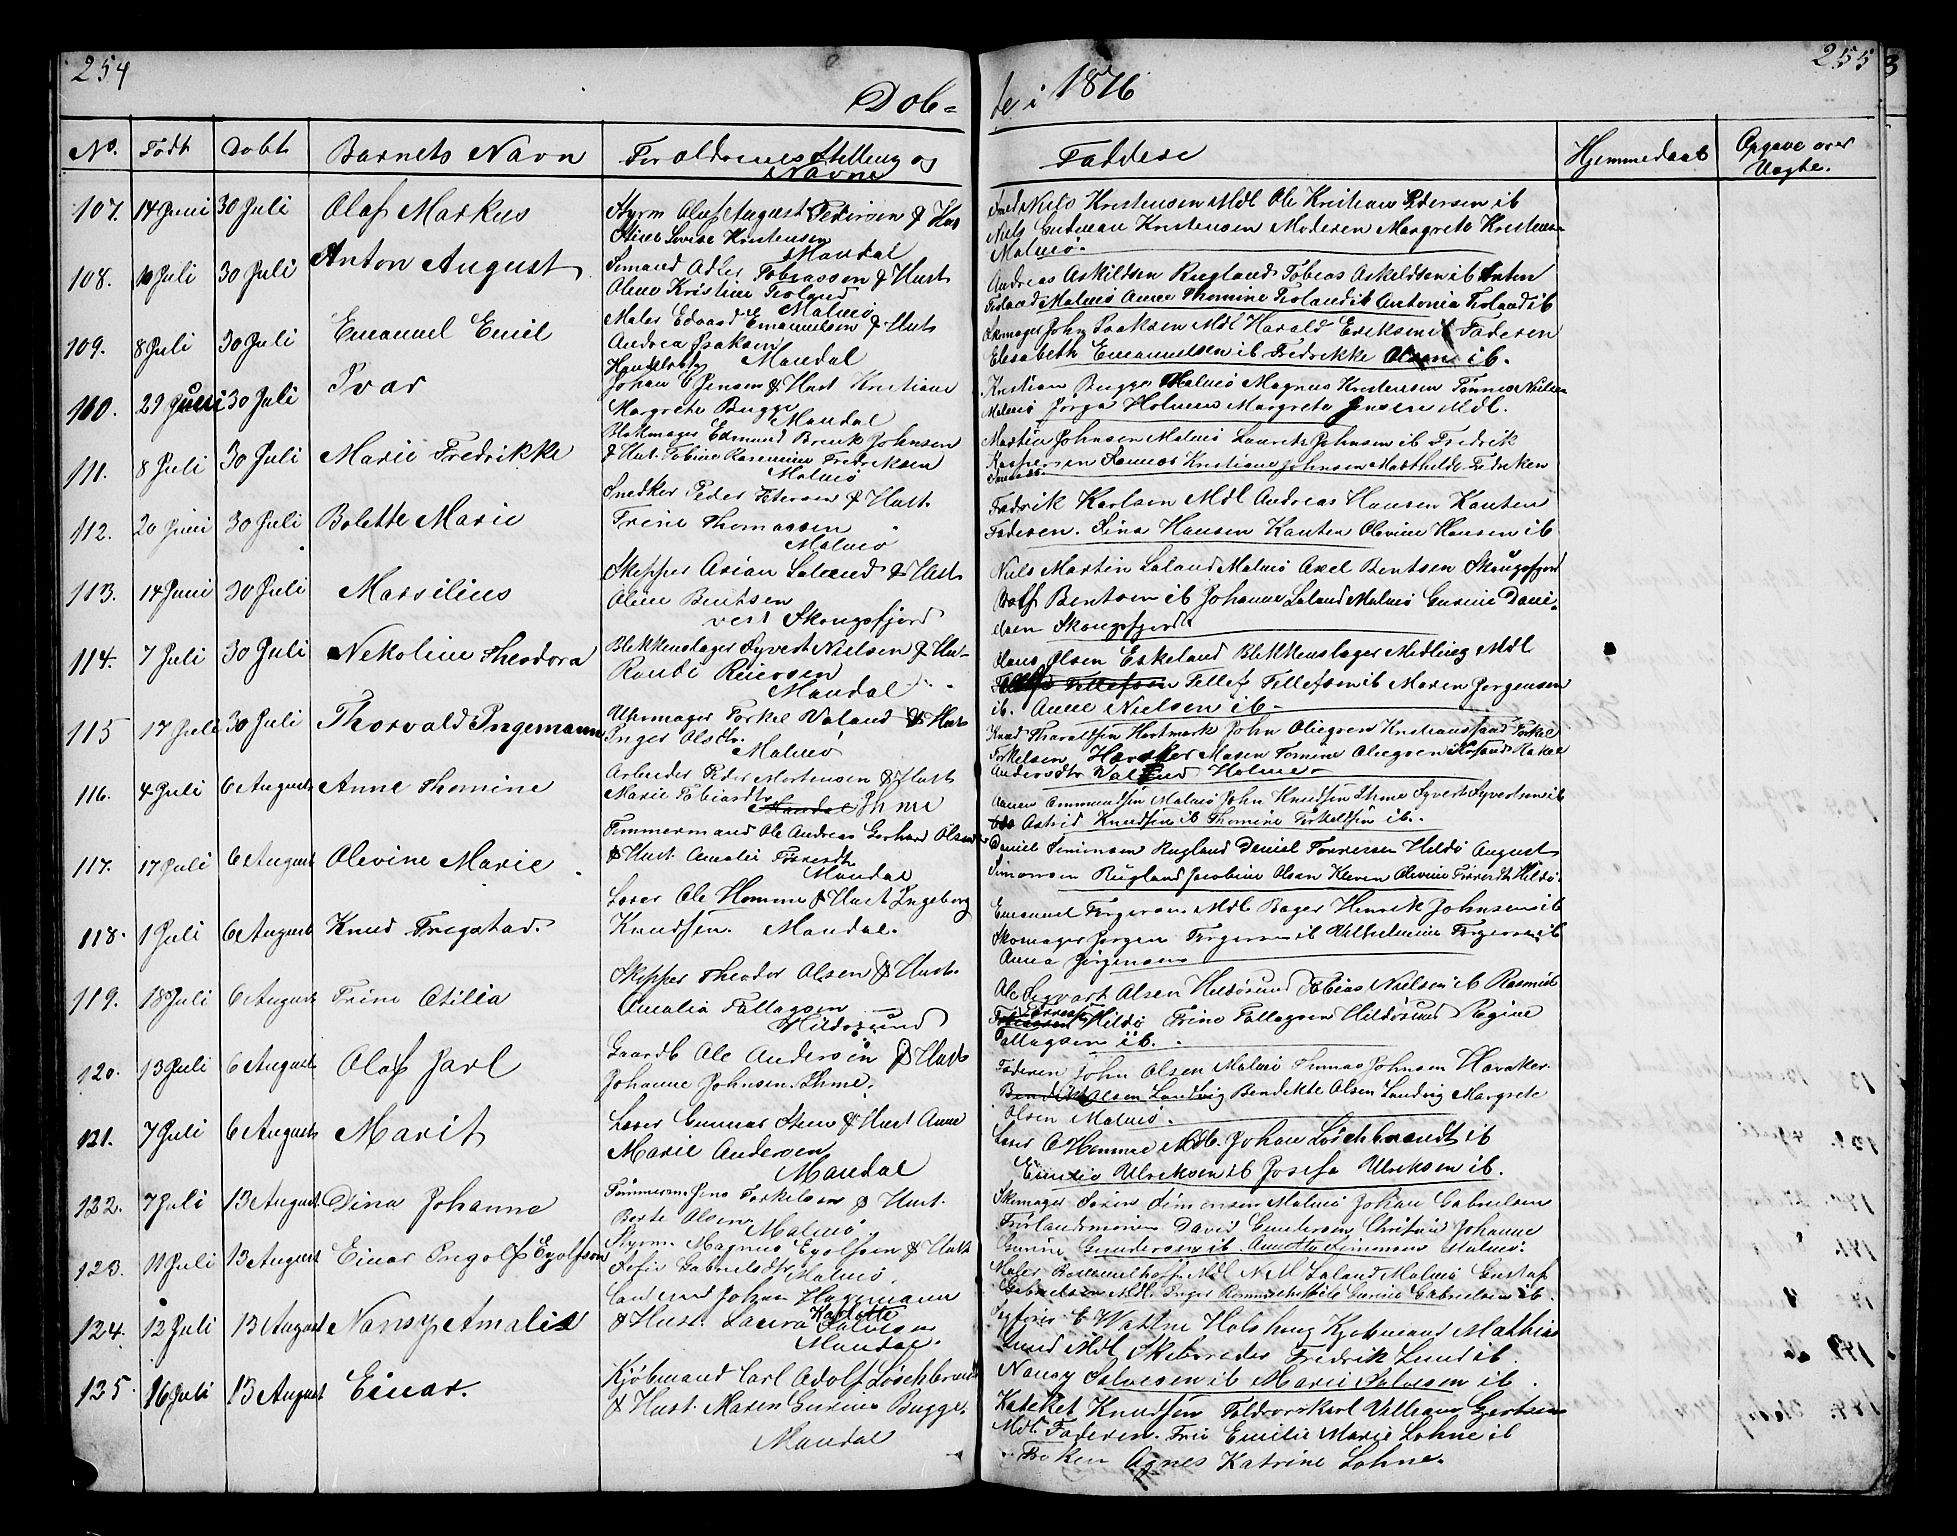 254
255
Dob=
te i 1876
No. Födt Dobt Barnets Navn Foraldrenes Stilling og Navne
Faddere Hjemmedaab Opgave over Uægte.
107. 14 Juni 30 Juli Olaf Markus
Styrm Oluf August Pedersen & Hust
Stine Lovise Kristensen
Mandal
Nils Kristensen Mdl Ole Kristian Pedersen ib
Niels Gudman Kristensen Moderen Margrete Kristensen
Malmö.
108. 10 Juli 30 Juli Anton August
Simand Adler Tobiassen & Hust
Oline Kristine Froland
Malmö
Andreas Askildsen Rugland Tobias Askildsen ib Anton
Froland Malmö Anne Thomine Froland ib Antonia Froland ib
109. 8 Juli 30 Juli Emanuel Emil
Maler Edvard Emanuelsen & Hust
Andrea Isaksen
Mandal
John Isaksen Mdl Harald Eriksen ib Faderen
Elisabeth Emanuelsen ib Fredrikke Olsen ib.
110. 29 Juni 30 Juli Ivar
Handelsbty
Johan C Jensen & Hust Kristiane
Margrete Bugge
Mandal
Kristian Bugge Malmö Magnus Kristensen Tönnes Nielsen
Malmö Jörga Holmen Margrete Jensen Mdl.
111. 8 Juli 30 Juli Marie Fredrikke
Blokmager Edmund Brink Johnsen
& Hust. Tobine Rasmine Fredriksen
Malmö
Martin Johnsen Malmö Laurets Johnsen ib Fredrik
Kaspersen Sannes Kristiane Johnsen Mathilde Fedreken
Sannes.
112. 20 Juni 30 Juli Bolette Marie
Snedker Peder Petersen & Hust.
Trine Thomassen
Malmö
Fredrik Karlsen Mdl Andreas Hansen Kanten
Faderen. Sina Hansen Kanten Olevine Hansen ib
113. 14 Juni 30 Juli Marsilius
Skipper Asian Laland & Hust
Oline Bentsen
vest Skougsfjord
Niels Martin Laland Malmö Axel Bentsen Skougsfjord
Rolf Bentsen ib Johanne Laland Malmö Gurine Dani-
elsen Skougsfjord
114. 7 Juli 30 Juli Nekoline Theodora
Blekkenslager Syvert Nielsen & Hu-
Randi Reiersen
Mandal
Hans Olsen Eskeland Blekkenslager Midling Mdl
Tellefsen Tellef Tellefsen ib Maren Jorgensen
ib. Anne Nielsen ib-
115 17 Juli 30 Juli Thorvald Ingemann
Uhrmager Torkel Valand & Hust
Inger Olsdtr.
Malmö
Knud Tharaldsen Hartmark John Oliegren Kristianssand Torkel
Torkelsen Haraker Maren Tomine Oliegren Krsand Hakel
Andersdtr Valand Holme-
116. 4 Juli 6 August Anne Thomine
Arbeider Peder Mortensen & Hust
Marie Tobiasdtr
Mandal Ihme
Aanen Ommundsen Malmö John Knudsen Ihme Syvert Syvertsen ib
Astrid Knudsen ib Thomine Torkeldsen ib.
117. 17 Juli 6 August Olevine Marie
Timmermand Ole Andreas Gerhard Olsen
& Hust. Amalie Torersdtr
Mandal
Daniel Simonsen Rugland Daniel Torresen Hildö August
Simonsen Rugland Jacobine Olsen Kleven Olevine Toresdtr Hildö.
118. 1 Juli 6 August Knud Tregstad.
Loser Ole Homme & Hust Ingeborg
Knudsen. Mandal.
Emanuel Torgersen Mdl Bager Henrik Johnsen ib
Skomager Jorgen Torgersen ib Vilhelmine Torgersen ib
Anna Jörgensen
119. 18 Juli 6 August Trine Otilia
Skipper Theodor Olsen & Hust.
Amalia Tallagsen
Hildosund
Ole Sigvart Olsen Hildosund Tobias Nielsen ib Rasmus
Torresen Hildö Trine Tallagsen Hildösund Regine
Tallagsen ib.
120. 13 Juli 6 August Olaf Jarl
Gaardb Ole Andersen & Hust
Johanne Johnsen. Ihme.
Faderen John Olsen Malmö Thomas Johnsen Haraker.
Olsen Landvig Bendikte Olsen Landvig Margrete
Olsen Malmö.
121. 7 Juli 6 August Marit
Loser Gunnar Steen & Hust Anne
Marie Andersen
Mandal
Loser O Homme Mdl. Johan Löschbrandt ib
Emilie Ulriksen ib Josefa Ulriksen ib.
122. 7 Juli 13 August Dina Johanne
Tömmerm Jens Torkelsen & Hust.
Berte Olsen
Malmö
Skomager Sören Simonsen Malmö Johan Gabrielsen
David Gundersen Christine Johanne
Gurine Gundersen ib. Annette Simonsen Malmö.
123. 11 Juli 13 August Einar Ingolf Eyolfsen
Styrm. Magnus Eyolfsen & Hust
Sofie Gabrielsdtr
Malmö.
Maler Mdl Nill Laland Malmö Gustaf
Gabrielsen Mdl Inger Gurine Gabrielsen ib.
124. 12 Juli 13 August Nansy Amalia
Johan Hagemann
& Hust. Laura Karlotte Salvesen
Mandal.
E Watne Holshoug Kjobmand Mathias
Lund Mdl Skibsreder Fredrik Lund ib.
Nansy Salvesen ib Marie Salvesen ib.
125. 16 Juli 13 August Einar.
Kjöbmand Carl Adolf Löschbrandt
& Hust. Maren Gurine Bugge.
Mandal
Kateket Knudsen Toldvorskarl Villiam Gjertsen
Mdl Faderen. Fru Emilie Marie Lohne ib
Froken Agnes Katrine Lohne.